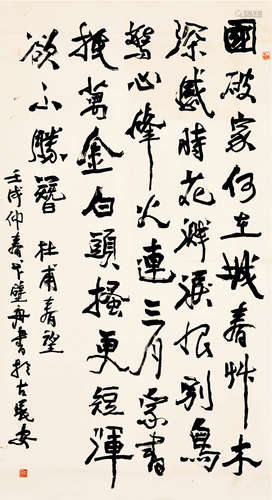 國破家何在城春艸木
深感時花濺淚恨別鳥
驚心烽火連三月家書
抵萬金白頭搔更短渾
欲不勝簪 杜甫春望
壬戌仲春戈壁舟書於古長安